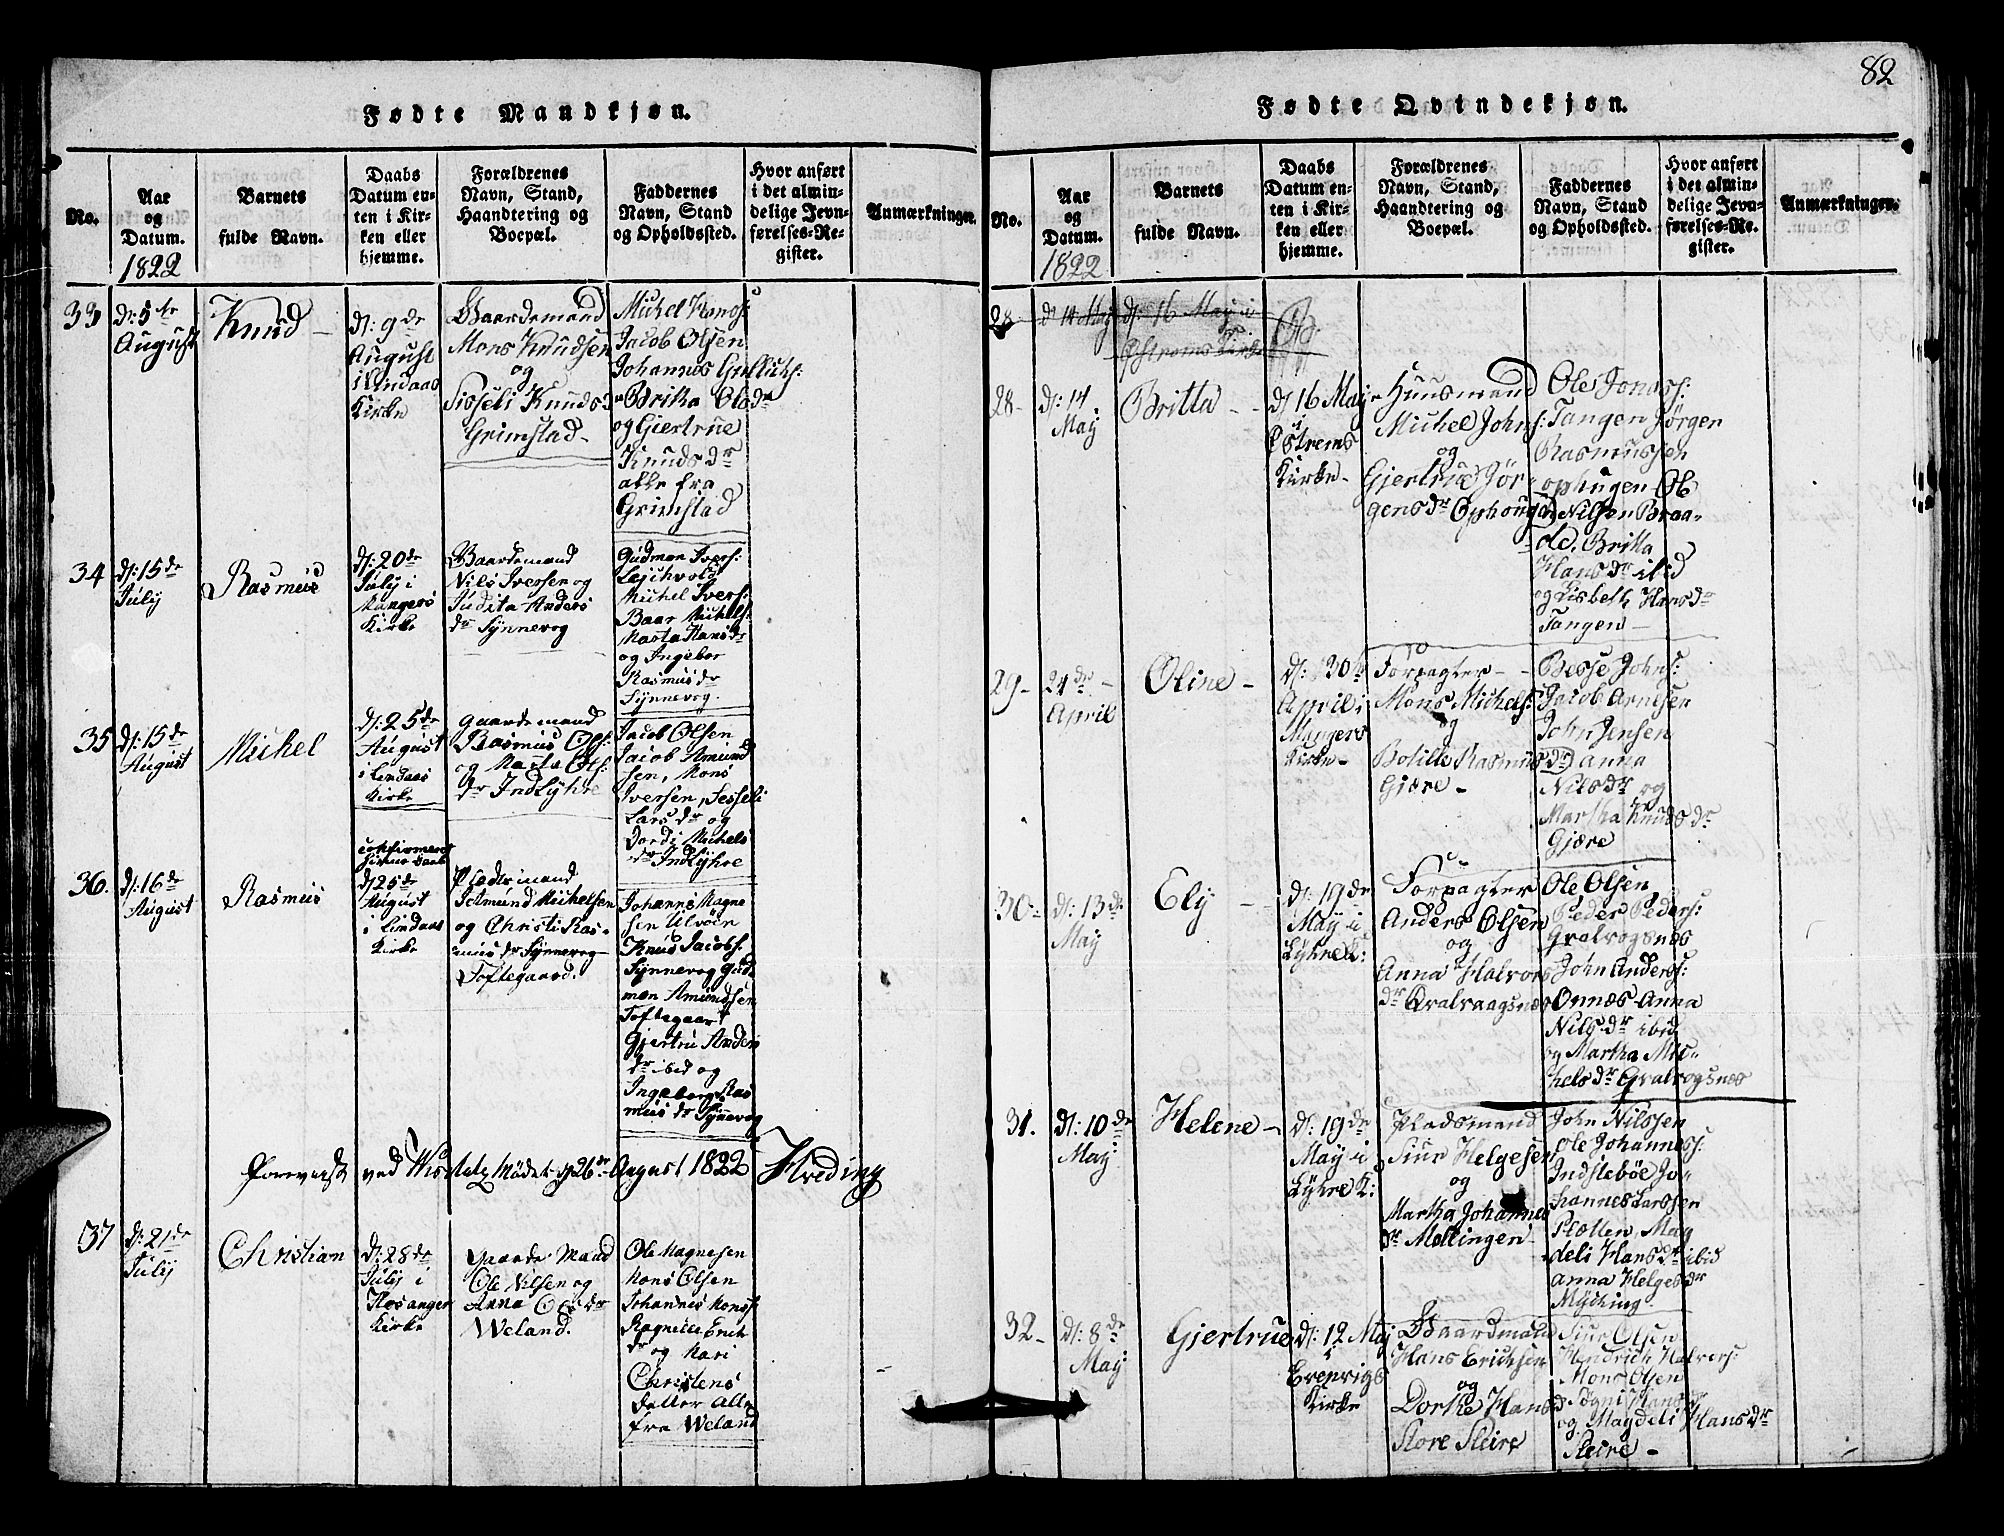 82
Fødte Mandkjøn.
No.
Aar
og
Datum.
1822
Barnets
fulde Navn.
Daabs
Datum en-
ten i Kir-
ken eller
hjemme.
Forældrenes
Navn, Stand,
Haandtering og
Boepæl.
Faddernes
Navn, Stand
og Opholdssted.
Hvor anført
i det almin-
delige Jevn-
førelses-Re-
gister.
Anmærkninger.
33
d: 5te
August
Knud
d: 9de
August
i Lindaas
Kirke
Gaardemand
Mons Knudsen
og
Sisseli Knuds D
Grimstad
Michel Hans:
Jacob Olsen
Johannes Gulliks:
Brita Ols dr
og Giertrue
Knuds dr
alle fra
Grimstad
34
d: 15de
July
Rasmus
d: 20de
July i
Mangers
Kirke
Gaardemand
Nils Iversen og
Judita Anders
dr Synnevog
Gudmon Ivers:
Michel Ivers:
Baar Michels:
Marta Hans dr
og Ingebor
Rasmus dr
Synnevog
35
d: 15de
August
Michel
d: 25de
August
i Lindaas
Kirke
gaardemand
Rasmus Ols:
og Marta Ols:
dr IndLÿhre
Jacob Olsen
Jacob Amund
sen, Mons
Iversen, Sesseli
Lars dr og
Dordi Michels
dr IndLÿhre
36.
d: 16de
August
Rasmus
d 25de
August
i Lindaas
Kirke
Amund Michelsen
og Christi Ras-
mus dr Synnevog
Toftegaard.
Johannes Magne
sen Ulvøen
Knud Jacobs:
Synnevog Gud
mon Amundsen
Toftegaard
Gjertru Anders
dr ibid og
Ingeborg Ras
mus dr Synnevog
ved Mødet d 26de August 1822
37
d: 21de
July
Christian
d: 28de
July i
Hosanger
Kirke
Gaarde Mand
Ole Nilsen og
Anna Ols dr
Weland.
Ole Magnesen
Mons Olsen
Johannes Mons:
Ragnilde Erich
dr og Mari
Christens
datter Alle
fra Weland
Fødte Qvindekjøn.
No.
Aar
og
Datum.
1822
Barnets
fulde Navn.
Daabs
Datum en-
ten i Kir-
ken eller
hjemme.
Forældrenes
Navn, Stand,
Haandtering og
Boepæl.
Faddernes
Navn, Stand
og Opholdssted.
Hvor anført
i det almin-
delige Jevn-
førelses-Re-
gister.
Anmærkninger.
28
d 14 May
d: 16 May i
Østrems Kirke
28-
d: 14
May
Britta
d 16 May
i
Østrems
Kirke
Huusmand
Michel Johns:
og
Gjertrue Jør
gens dr Ophougen
Ole Jonas:
Tangen Jørgen
Rasmussen
ophugen Ole
Nilsen Braa-
Britta
Hans dr ibid
og Lisbeth Hans dr
Tangen
29-
24de
April
Oline
d: 30te
April i
Mangers
Kirke
Forpagter
Mons Michels:
og
Botille Rasmus dr
Giære
Besse Johns:
Jacob Arnesen
John Jensen
anna
Nils dr og
Martha Knuds dr
Gjære
30-
d: 13de
May
Ely
d: 19de
May i
Lÿhre K:
Forpagter
Anders Olsen
og
Anna Halvors
dr Qvalvaagsnes
Ole Olsen
Peder Peders:
Qvalvogsnæs
John Anders:
Onnæs Anna
Nils dr ibid
og Martha Mic-
hels dr Qvalvogsnæs
31.
d: 10de
May
Helene
d: 19de
May i
Lÿhre K:
Pladsmand
Siur Helgesen
og
Martha Johannes
dr Mollingen
John Nilssen
Ole Johannes:
Indslebøe Jo-
hannes Larssen
Stollen Mag
deli Hans dr ibid
anna Helges dr
Mÿching
32-
d: 8de
May
Gjertrue
d: 12 May
i
Evenvigs
Kirke
Gaardmand
Hans Erichsen
og
Dorthe Hans
Store Steire
Siur Olsen
Hendrich Halvers:
Mons Olsen
og Magdeli Hans dr
Steire